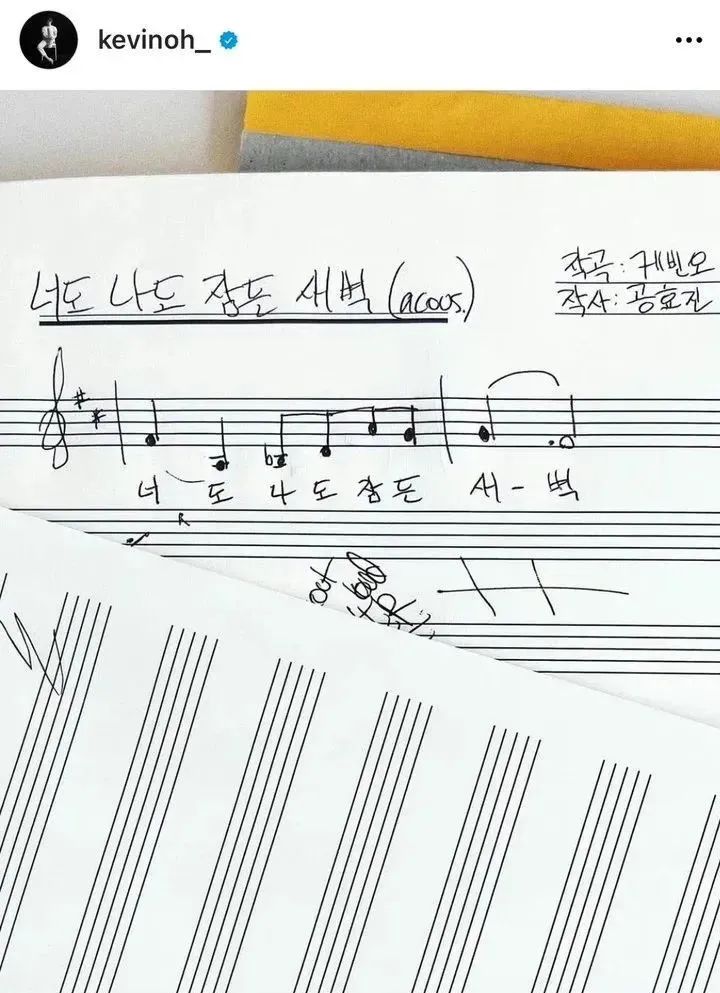 kevinoh_
너도 나도 잠든 새벽 (acous.)
작곡 : 케빈오
작사 : 공효진
너 도 나 도 잠 든 새 - 벽
R
out